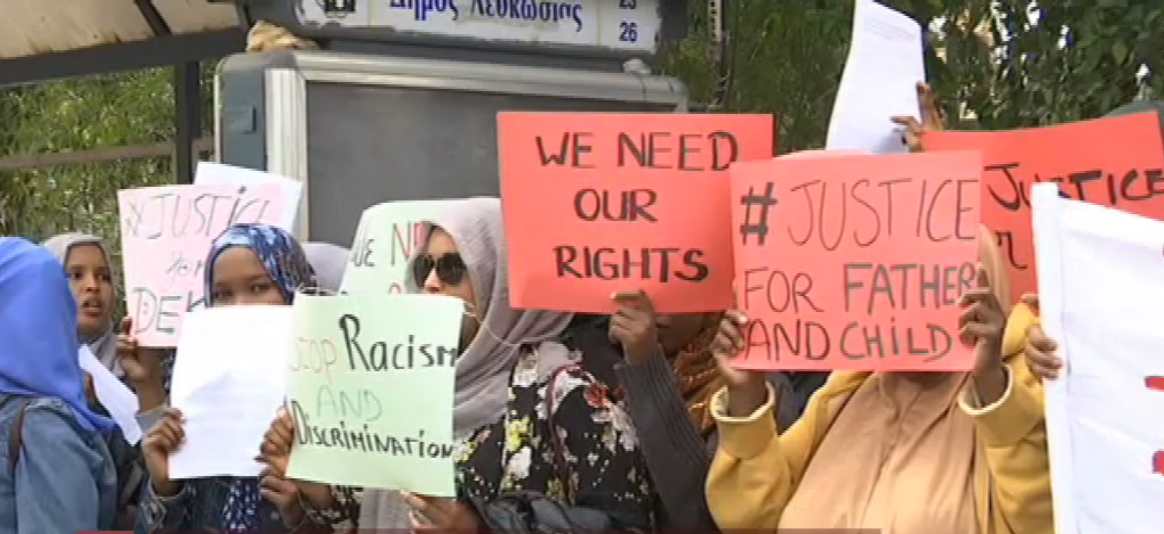 Δήμος Λευκωσίας
25
26
#JUSTICE
WE NEED
OUR
RIGHTS
#JUSTICE
FOR FATHER
AND CHILD
JUSTICE
STOP Racism
AND
DISCRIMINATION